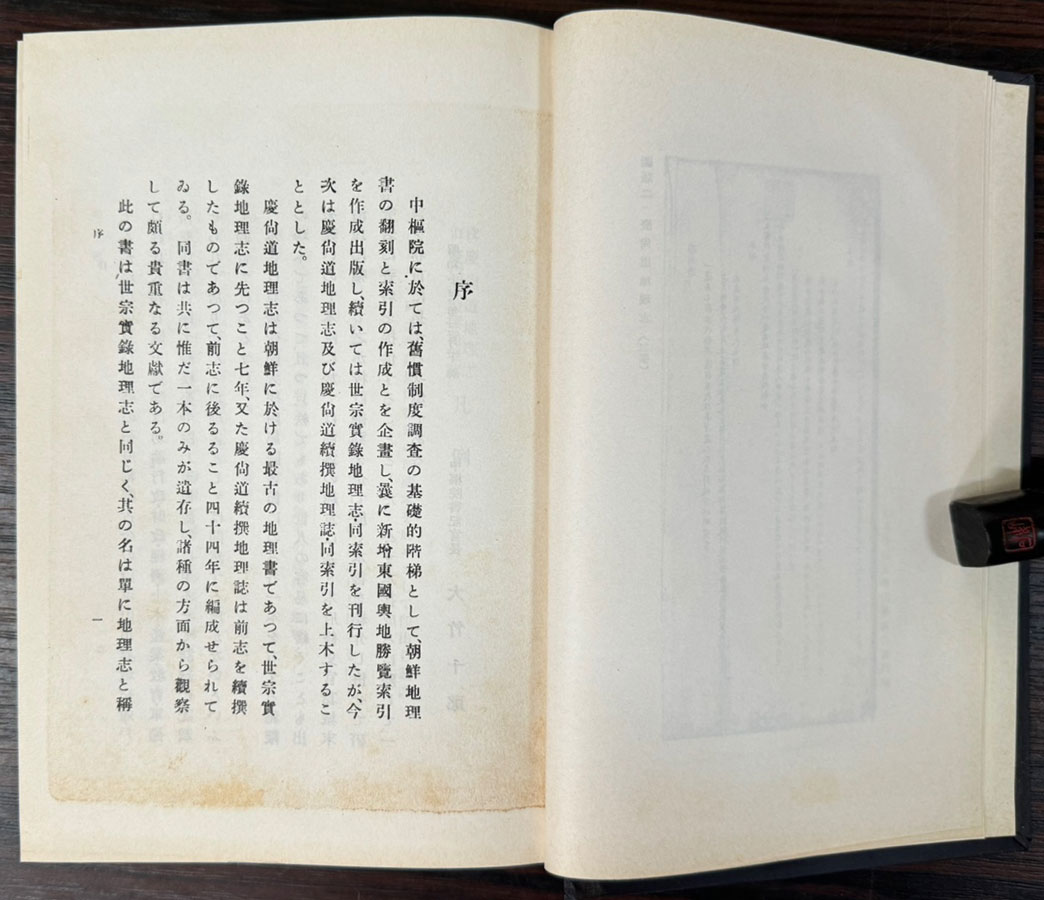 序
中樞院に於ては、舊慣制度調査の基礎的階梯として、朝鮮地理
書の翻刻と索引の作成とを企畫し、曩に新增東國輿地勝覽索引
を作成出版し、續いては世宗實錄地理志・同索引を刊行したが、今
次は慶尙道地理志及び慶尙道續撰地理誌・同索引を上木するこ
ととした。
慶尙道地理志は朝鮮に於ける最古の地理書であつて、世宗實
錄地理志に先つこと七年、又た慶尙道續撰地理誌は前志を續撰
したものであつて、前志に後るること四十四年に編成せられて
ゐる。同書は共に惟だ一本のみが遺存し、諸種の方面から觀察
して頗る貴重なる文獻である。
此の書は世宗實錄地理志と同じく、其の名は單に地理志と稱
序
一